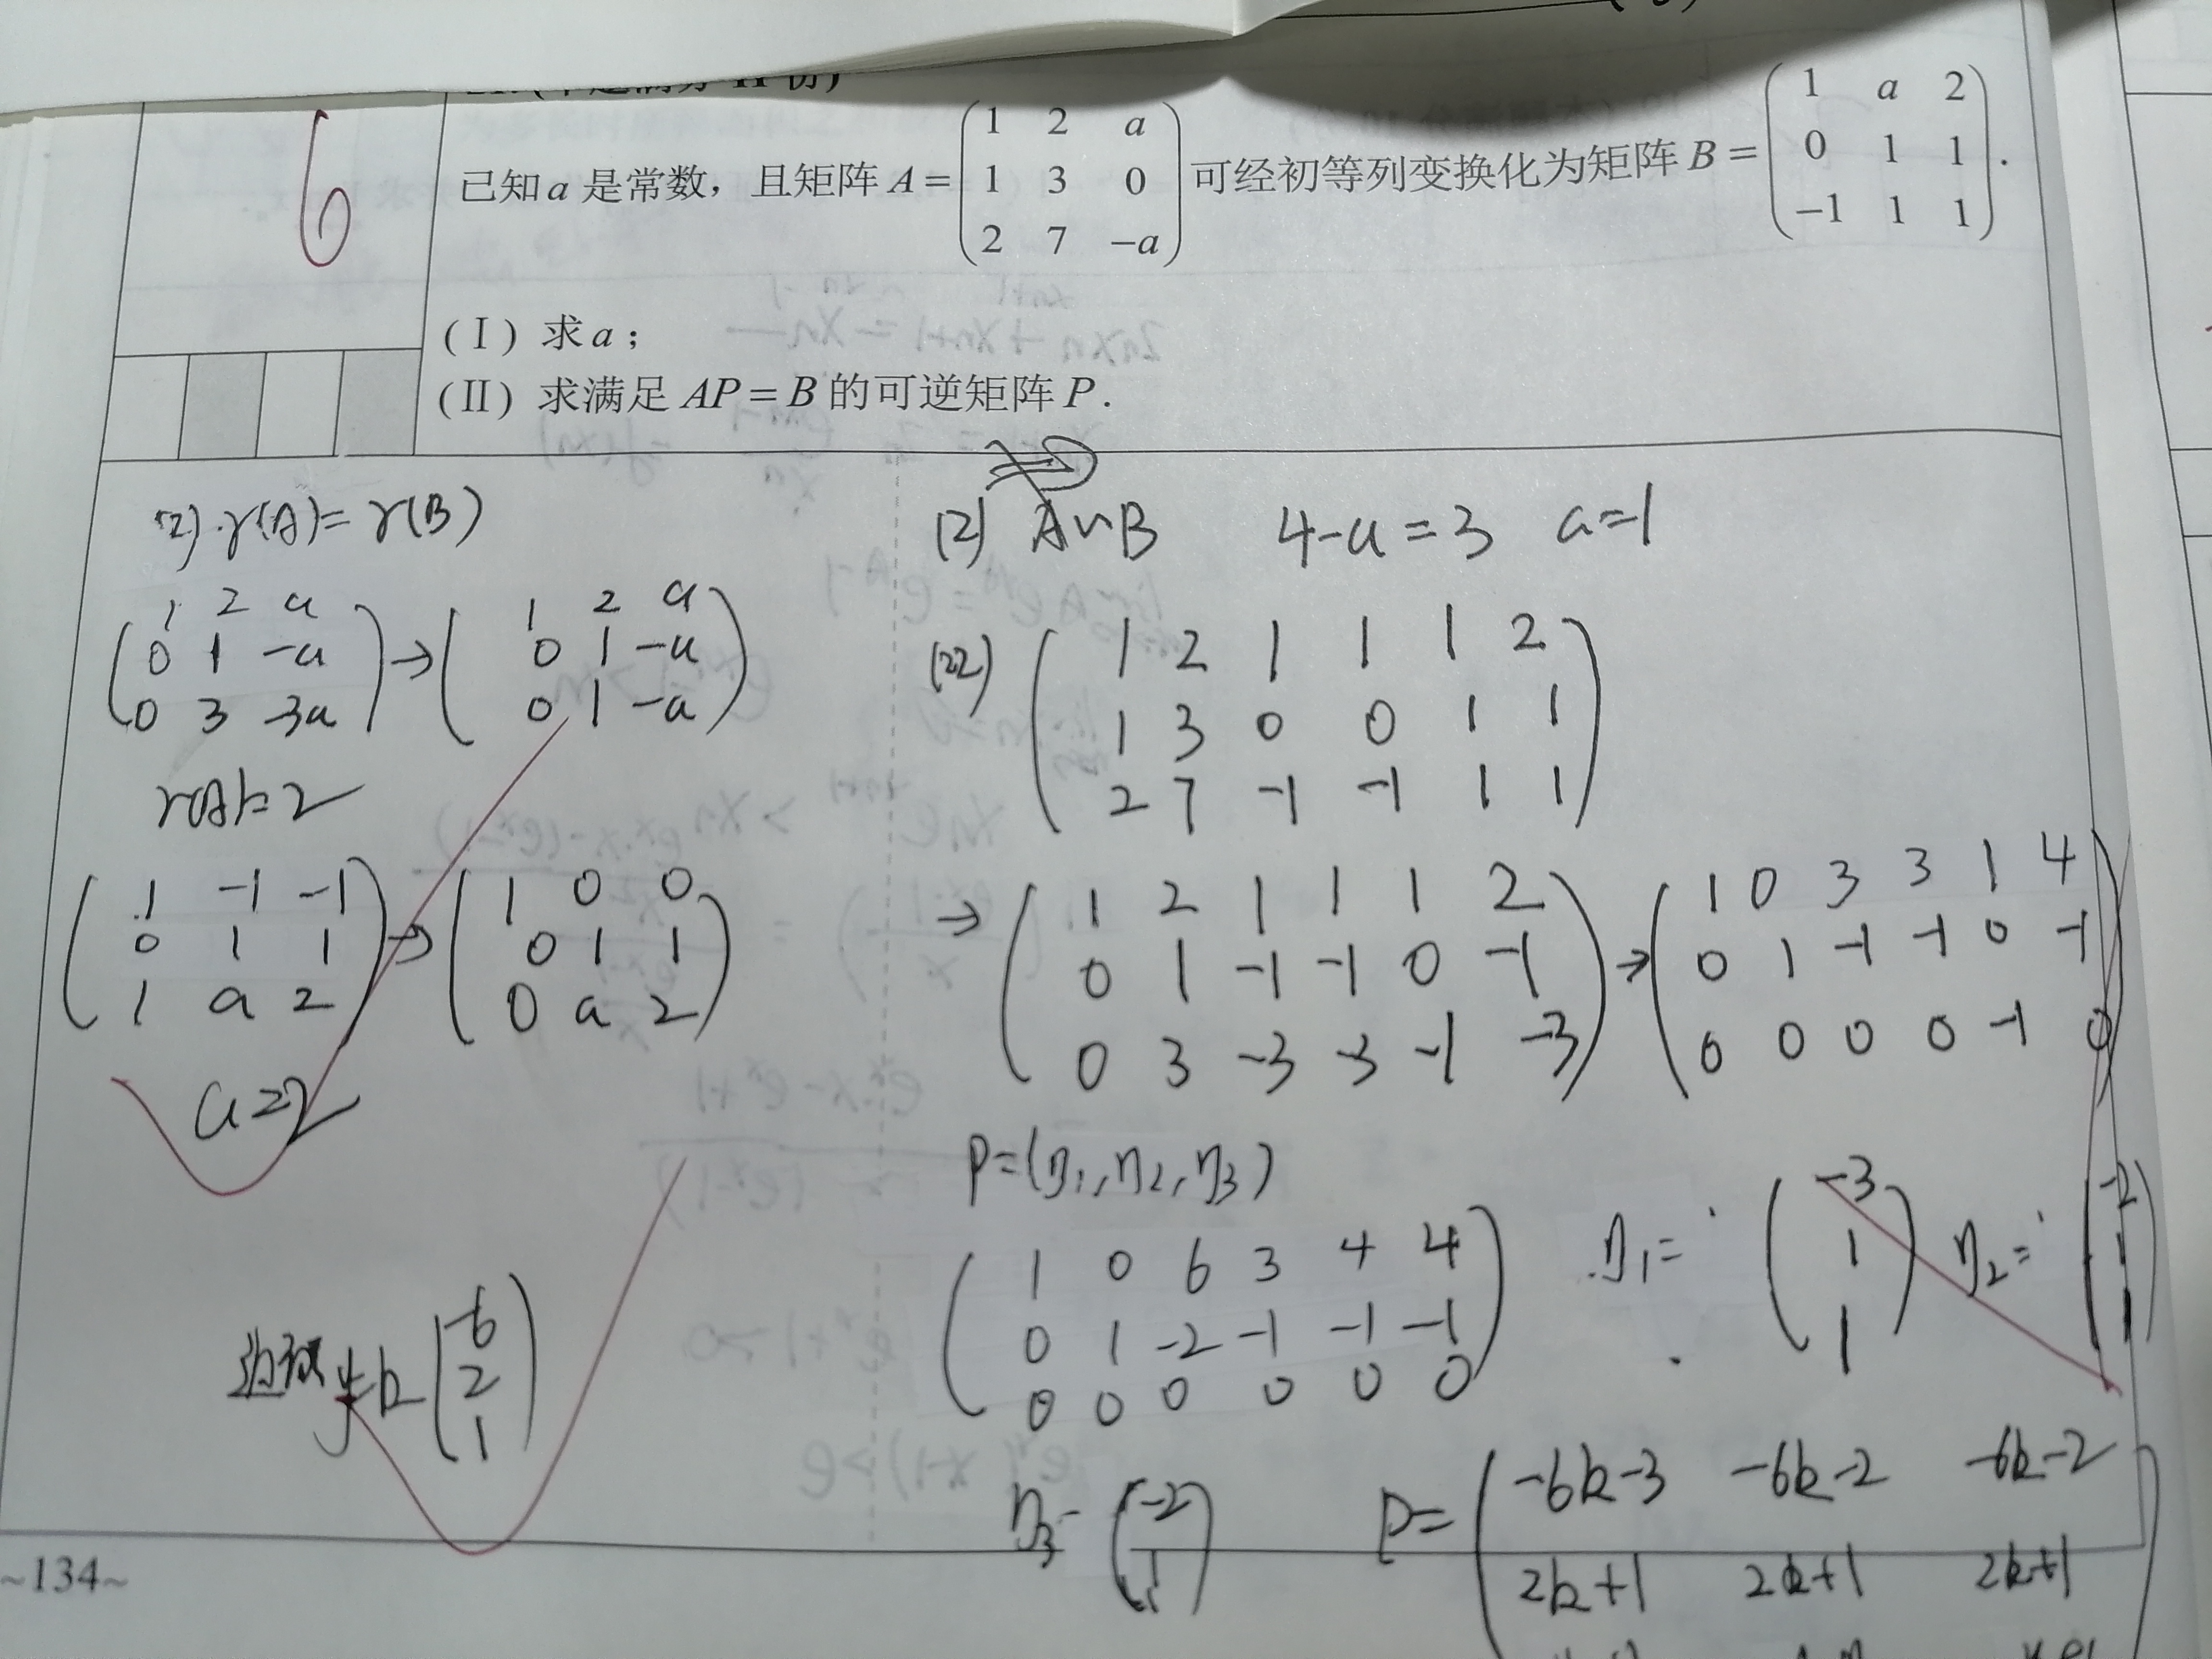 6
已知a是常数，且矩阵A=(1 2 a
1 3 0
2 7 -a)可经初等列变换化为矩阵B=(1 a 2
0 1 1
-1 1 1).
(Ⅰ) 求a；
(Ⅱ) 求满足AP=B的可逆矩阵P.
r(A)=r(B)
(1 2 a
0 1 -a
0 3 -3a)→(1 2 a
0 1 -a
0 1 -a)
r(A)=2
(1 -1 -1
0 1 1
1 a 2)→(1 0 0
0 1 1
0 a 2)
a=2
(-6
2
1)
(2) A~B 4-a=3 a=1
(1 2 1 1 1 2
1 3 0 0 1 1
2 7 -1 -1 1 1)
→(1 2 1 1 1 2
0 1 -1 -1 0 -1
0 3 -3 -3 -1 -3)→(1 0 3 3 1 4
0 1 -1 -1 0 -1
0 0 0 0 -1 0)
P=(η1,η2,η3)
(1 0 6 3 4 4
0 1 -2 -1 -1 -1
0 0 0 0 0 0) η1=(-3
1
1) η2=(-2
1
1)
η3=(-2
1 P=(-6k-3 -6k-2 -6k-2
2k+1 2k+1 2k+1
~134~